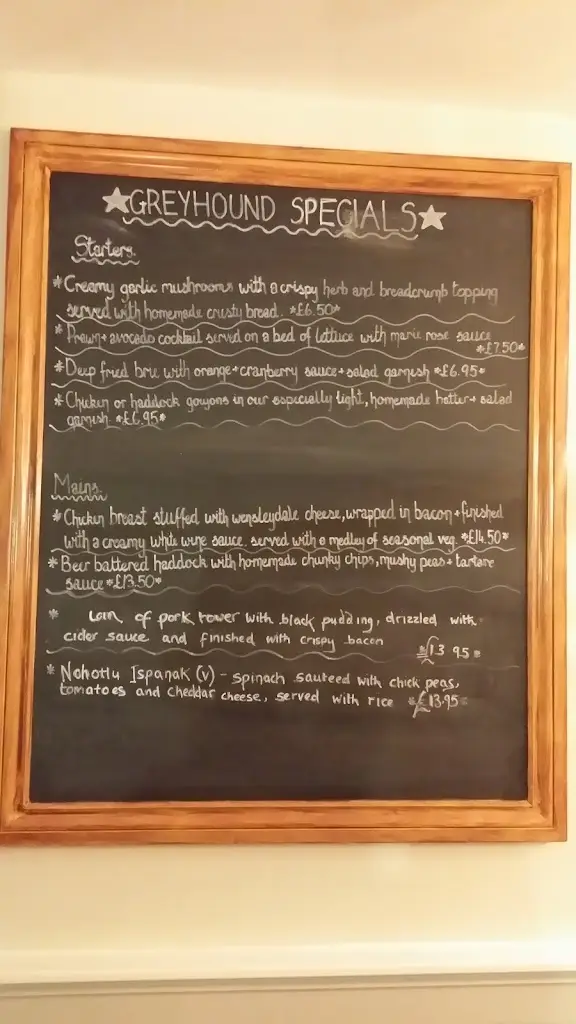 ★GREYHOUND SPECIALS★
Starters.
*Creamy garlic mushrooms with a crispy herb and breadcrumb topping
served with homemade crusty bread. *£6.50*
*Prawn + avocado cocktail served on a bed of lettuce with marie rose sauce
*£7.50*
*Deep fried brie with orange + cranberry sauce + salad garnish *£6.95*
*Chicken or haddock goujons in our especially light, homemade batter + salad
garnish *£6.95*
Mains.
*Chicken breast stuffed with wensleydale cheese, wrapped in bacon + finished
with a creamy white wine sauce. served with a medley of seasonal veg. *£14.50*
*Beer battered haddock with homemade chunky chips, mushy peas + tartare
sauce *£13.50*
* Loin of pork tower with black pudding, drizzled with
cider sauce and finished with crispy bacon
*£13 95*
* Nohotlu Ispanak (v) - spinach sauteed with chick peas,
tomatoes and cheddar cheese, served with rice *£13.95*